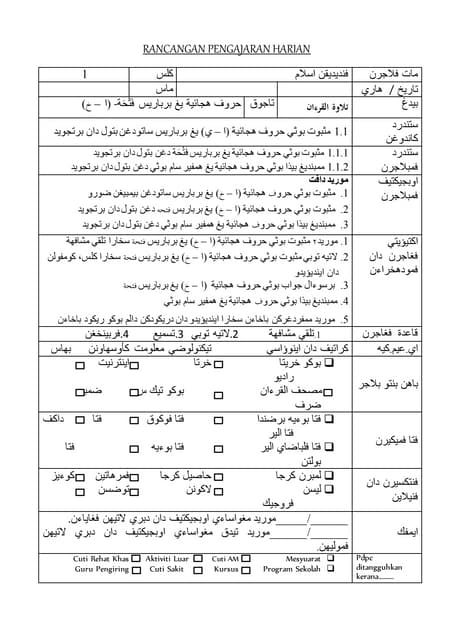 RANCANGAN PENGAJARAN HARIAN
مات ڤلاجرن فنديديقن اسلام كلس 1
تاريخ / هاري ماس
بيدڠ تلاوة القرءان تاجوق حروف هجائية يڠ برباريس فَتْحَة- (ا – خ)
ستندرد كاندوڠن 1.1 مثبوت بوڽي حروف هجائية (ا – ي) يڠ برباريس ساتودڠن بتول دان برتجويد
ستندرد ڤمبلاجرن 1.1.1 مثبوت بوڽي حروف هجائية يڠ برباريس فَتْحَة دڠن بتول دان برتجويد
1.1.2 ممبنديڠ بيذا بوڽي حروف هجائية يڠ همڤير سام بوڽي دڠن بتول دان برتجويد
اوبجيكتيف ڤمبلاجرن موريد داڤت
1. مثبوت بوڽي حروف هجائية (ا – خ) يڠ برباريس ساتودڠن بيمبيڠن ضورو
2. مثبوت بوڽي حروف هجائية (ا – خ) يڠ برباريس فتحة دڠن بتول دان برتجويد
3. ممبنديڠ بيذا بوڽي حروف هجائية يڠ همڤير سام بوڽي دڠن بتول دان برتجويد
اكتيۏيتي ڤڠاجرن دان ڤمودهخراءن 1. موريد٢ مثبوت بوڽي حروف هجائية (ا – خ) يڠ برباريس فتحة سخارا تلقي مشافهة
2. لاتيه توبي مثبوت بوڽي حروف هجائية (ا – خ) يڠ برباريس فتحة سخارا كلس، كومڤولن دان اينديۏيدو
3. برسوءال جواب بوڽي حروف هجائية (ا – خ) يڠ برباريس فتحة
4. ممبنديڠ بيذا بوڽي حروف هجائية يڠ همڤير سام بوڽي
5. موريد ممڤردڠركن باخاءن سخارا اينديۏيدو دان دريكودكن دالم بوكو ريكود باخاءن
قاعدة ڤڠاجرن 1.تلقي مشافهة 2.لاتيه توبي 3.تسميع 4.ڤربينخڠن
اي.عيم.كيه كراتيف دان اينوۏاسي تيكنولوضي معلومت كأوسهاونن بهاس
باهن بنتو بلاجر بوكو خريتا خرتا اينترنيت
راديو
مصحف القرءان بوكو تيك س ضمبر
ضرف
ڤتا ڤميكيرن ڤتا بوءيه برضندا ڤتا ڤوكوق ڤتا داكڤ
ڤتا الير
ڤتا ڤلباضاي الير ڤتا بوءيه ڤتا
بولتن
ڤنتكسيرن دان ڤنيلاين لمبرن كرجا حاصيل كرجا ڤمرهاتين كوءيز
ليسن لاكونن توضسن
ڤروجيك
ايمڤك ______/______موريد مڠواساءي اوبجيكتيف دان دبري لاتيهن ڤڠاياءن.
______/______موريد تيدق مڠواساءي اوبجيكتيف دان دبري لاتيهن ڤموليهن.
Pdpc ditangguhkan kerana........ Cuti Rehat Khas Aktiviti Luar Cuti AM Mesyuarat
Guru Pengiring Cuti Sakit Kursus Program Sekolah